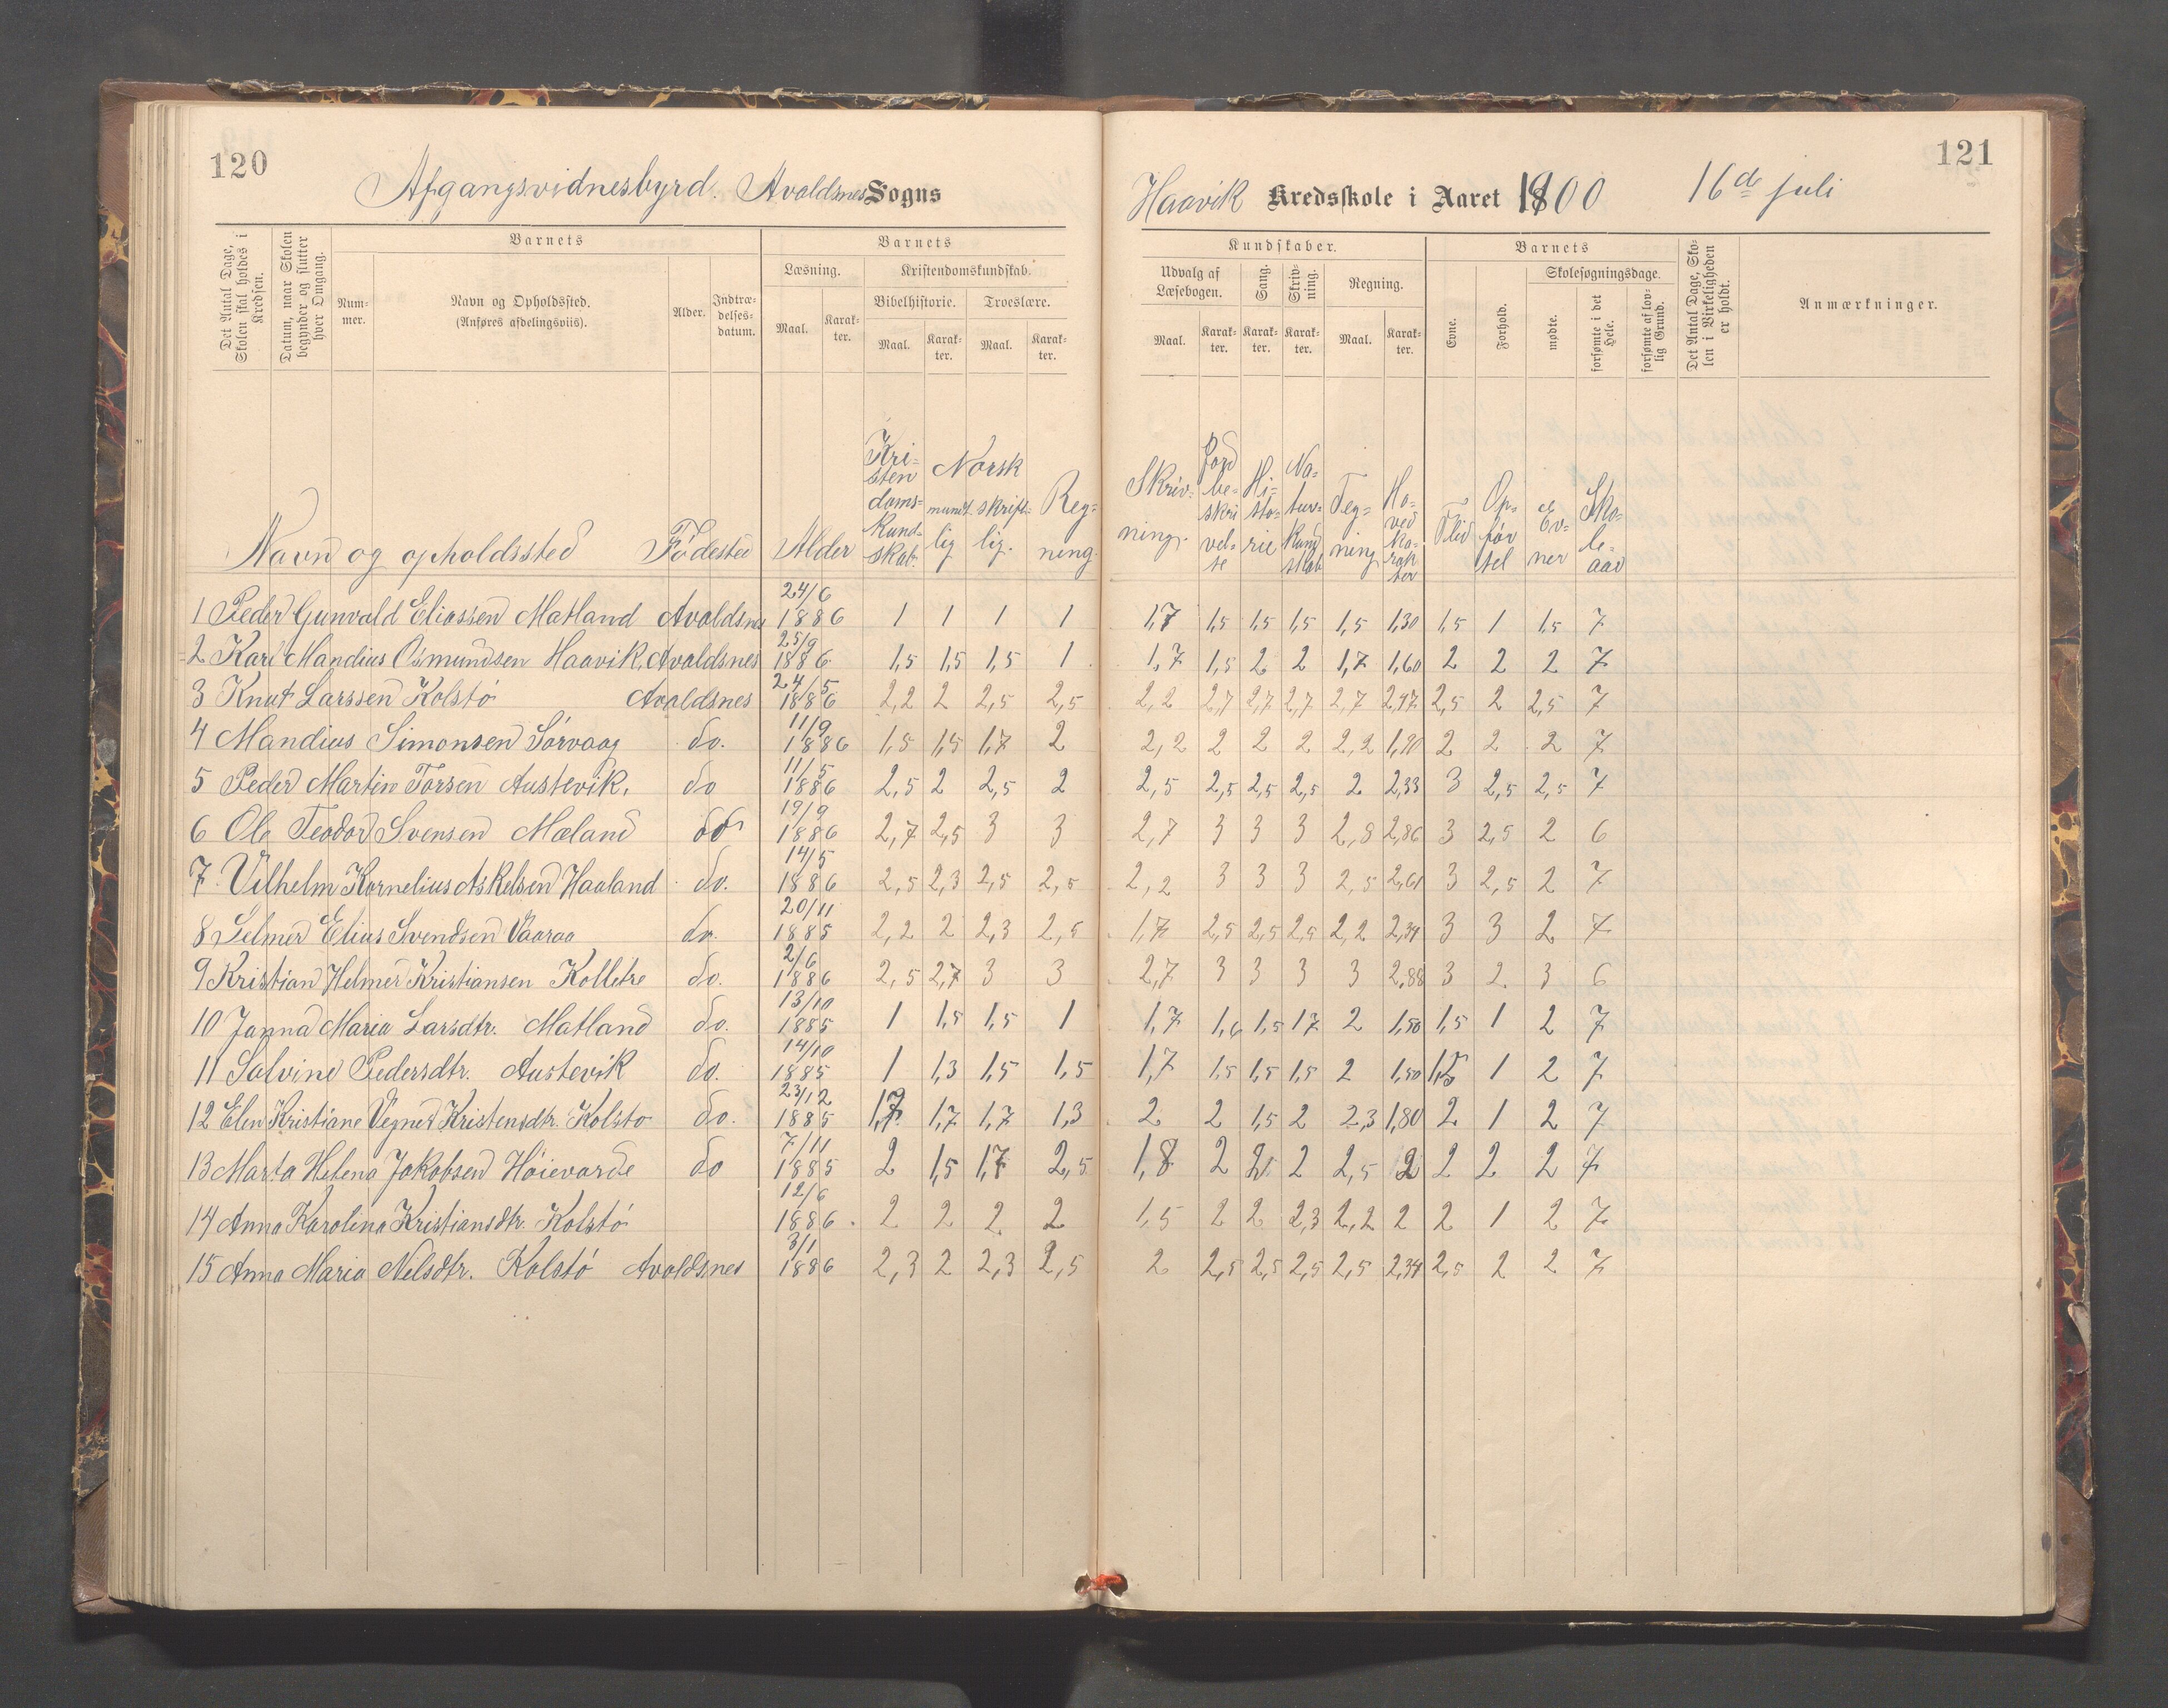 120
Afgangsvidnesbyrd. Avaldsnes Sogns
Det Antal Dage, Skolen skal holdes i Kredsen.
Datum, naar Skolen begynder og slutter hver Omgang.
Barnets
Num-
mer.
Navn og Opholdssted.
(Anføres afdelingsviis).
Alder.
Indtræ-
delses-
datum.
Barnets
Læsning.
Maal.
Karak-
ter.
Kristendomskundskab.
Bibelhistorie.
Troeslære.
Maal.
Karak-
ter.
Maal.
Karak-
ter.
Navn og opholdssted Fødested Alder Kri-
sten
doms-
kund-
skab. Norsk
mundt-
lig skrift-
lig. Reg-
ning.
1 Peder Gunvald Eliassen Matland Avaldsnes 24/6 1886 1 1 1 1
2 Karl Mandius Osmundsen Haavik, Avaldsnes 25/9 1886 1,5 1,5 1,5 1
3 Knut Larssen Kolstø Avaldsnes 24/5 1886 2,2 2 2,5 2,5
4 Mandius Simonsen Sørvaag do. 11/9 1886 1,5 1,5 1,7 2
5 Peder Martin Torsen Austevik, do 11/5 1886 2,5 2 2,5 2
6 Ole Teodor Svensen Mæland do 19/9 1886 2,7 2,5 3 3
7. Vilhelm Kornelius Askelsen Haaland do. 14/5 1886 2,5 2,3 2,5 2,5
8 Selmer Elius Svendsen Vaaraa do. 20/11 1885 2,2 2 2,3 2,5
9 Kristian Helmer Kristiansen Kolletre do. 2/6 1886 2,5 2,7 3 3
10 Janna Maria Larsdtr. Matland do. 13/10 1885 1 1,5 1,5 1
11 Salvine Pedersdtr. Austevik do. 14/10 1885 1 1,3 1,5 1,5
12 Elen Kristiane Vegner Kristensdtr. Kolstø do. 23/12 1885 1,7 1,7 1,7 1,3
13 Marta Helena Jakobsen Høievarde do 7/11 1885 2 1,5 1,7 2,5
14 Anna Karolina Kristiansdtr. Kolstø 12/6 1886. 2 2 2 2
15 Anna Maria Nilsdtr. Kolstø Avaldsnes 3/1 1886 2,3 2 2,3 2,5
121
Haavik Kredsskole i Aaret 1900 16de juli
Kundskaber.
Udvalg af
Læsebogen.
Maal.
Karak-
ter.
Sang.
Karak-
ter.
Skriv-
ning.
Karak-
ter.
Regning.
Maal.
Karak-
ter.
Barnets
Evne.
Forhold.
Skolesøgningsdage.
mødte.
forsømte i det Hele.
forsømte af lov-
lig Grund.
Det Antal Dage, Sko-
len i Virkeligheden
er holdt.
Anmærkninger.
Skriv-
ning. Jord
be-
skri
vel-
se Hi-
sto-
rie Na-
tur-
kund
skab Teg-
ning Ho-
ved
ka-
rak
ter Flid Op-
før
sel Ev-
ner Sko-
le-
aar
1,7 1,5 1,5 1,5 1,5 1,30 1,5 1 1,5 7
1,7 1,5 2 2 1,7 1,60 2 2 2 7
2,2 2,7 2,7 2,7 2,7 2,47 2,5 2 2,5 7
2,2 2 2 2 2,2 1,90 2 2 2 7
2,5 2,5 2,5 2,5 2 2,33 3 2,5 2,5 7
2,7 3 3 3 2,8 2,86 3 2,5 2 6
2,2 3 3 3 2,5 2,61 3 2,5 2 7
1,7 2,5 2,5 2,5 2,2 2,34 3 3 2 7
2,7 3 3 3 3 2,88 3 2 3 6
1,7 1,6 1,5 1,7 2 1,50 1,5 1 2 7
1,7 1,5 1,5 1,5 2 1,50 1,5 1 2 7
2 2 1,5 2 2,3 1,80 2 1 2 7
1,8 2 2 2 2,5 2 2 2 2 7
1,5 2 2 2,3 2,2 2 2 1 2 7
2 2,5 2,5 2,5 2,5 2,34 2,5 2 2 7